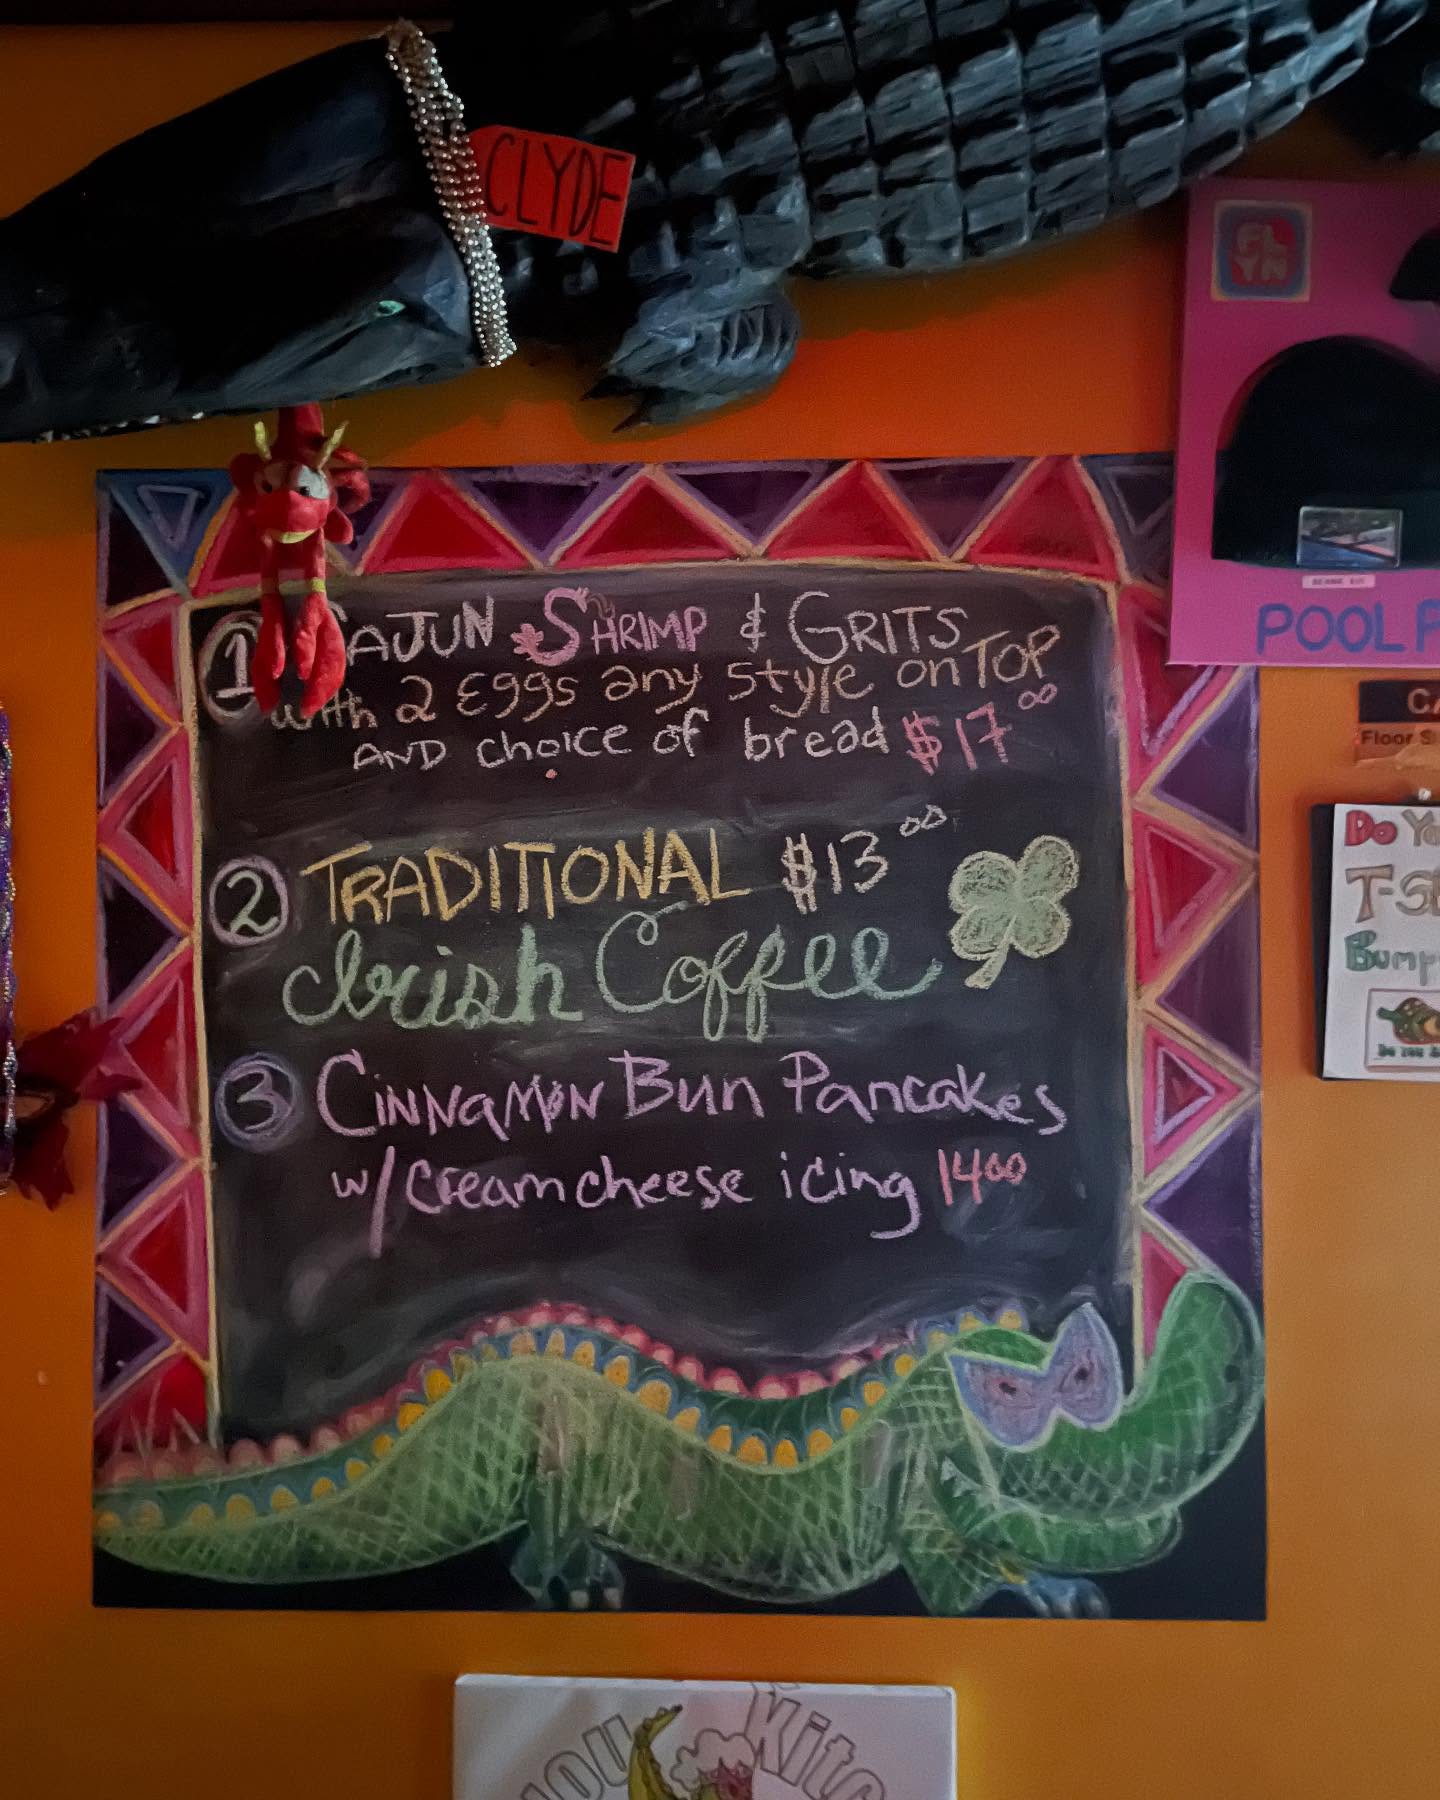 CLYDE
FL
YN
POOL
① CAJUN SHRIMP & GRITS
with 2 Eggs any style on TOP
AND choice of bread $17⁰⁰
② TRADITIONAL $13⁰⁰
Irish Coffee
③ CINNAMON Bun Pancakes
w/ cream cheese icing 14⁰⁰
Floor
Do